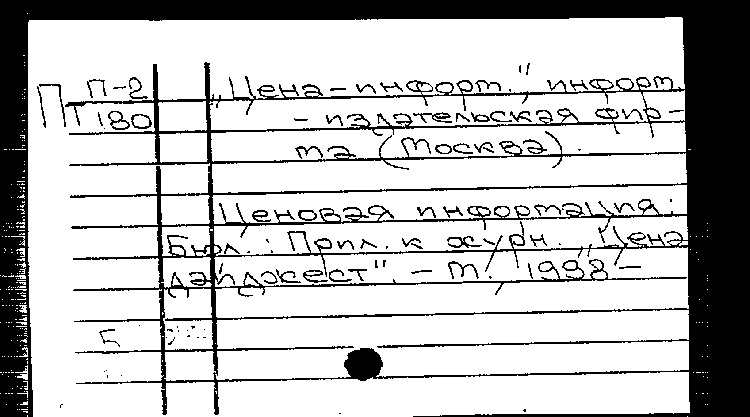 П-2 „Цена-информ.", информ.
ПТ 180 - издательская фир-
ма (Москва).
Ценовая информация:
Бюл.: Прил. к журн. „Цена
дайджест". - М., 1998-
Б